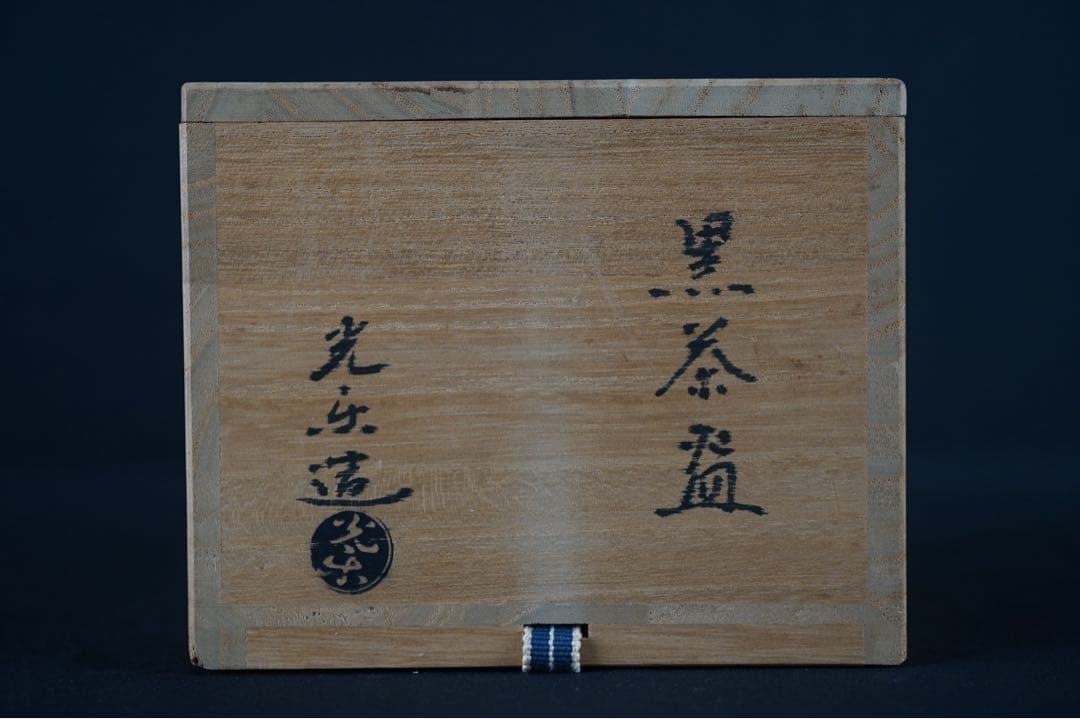 黒茶盌
光楽造
光楽